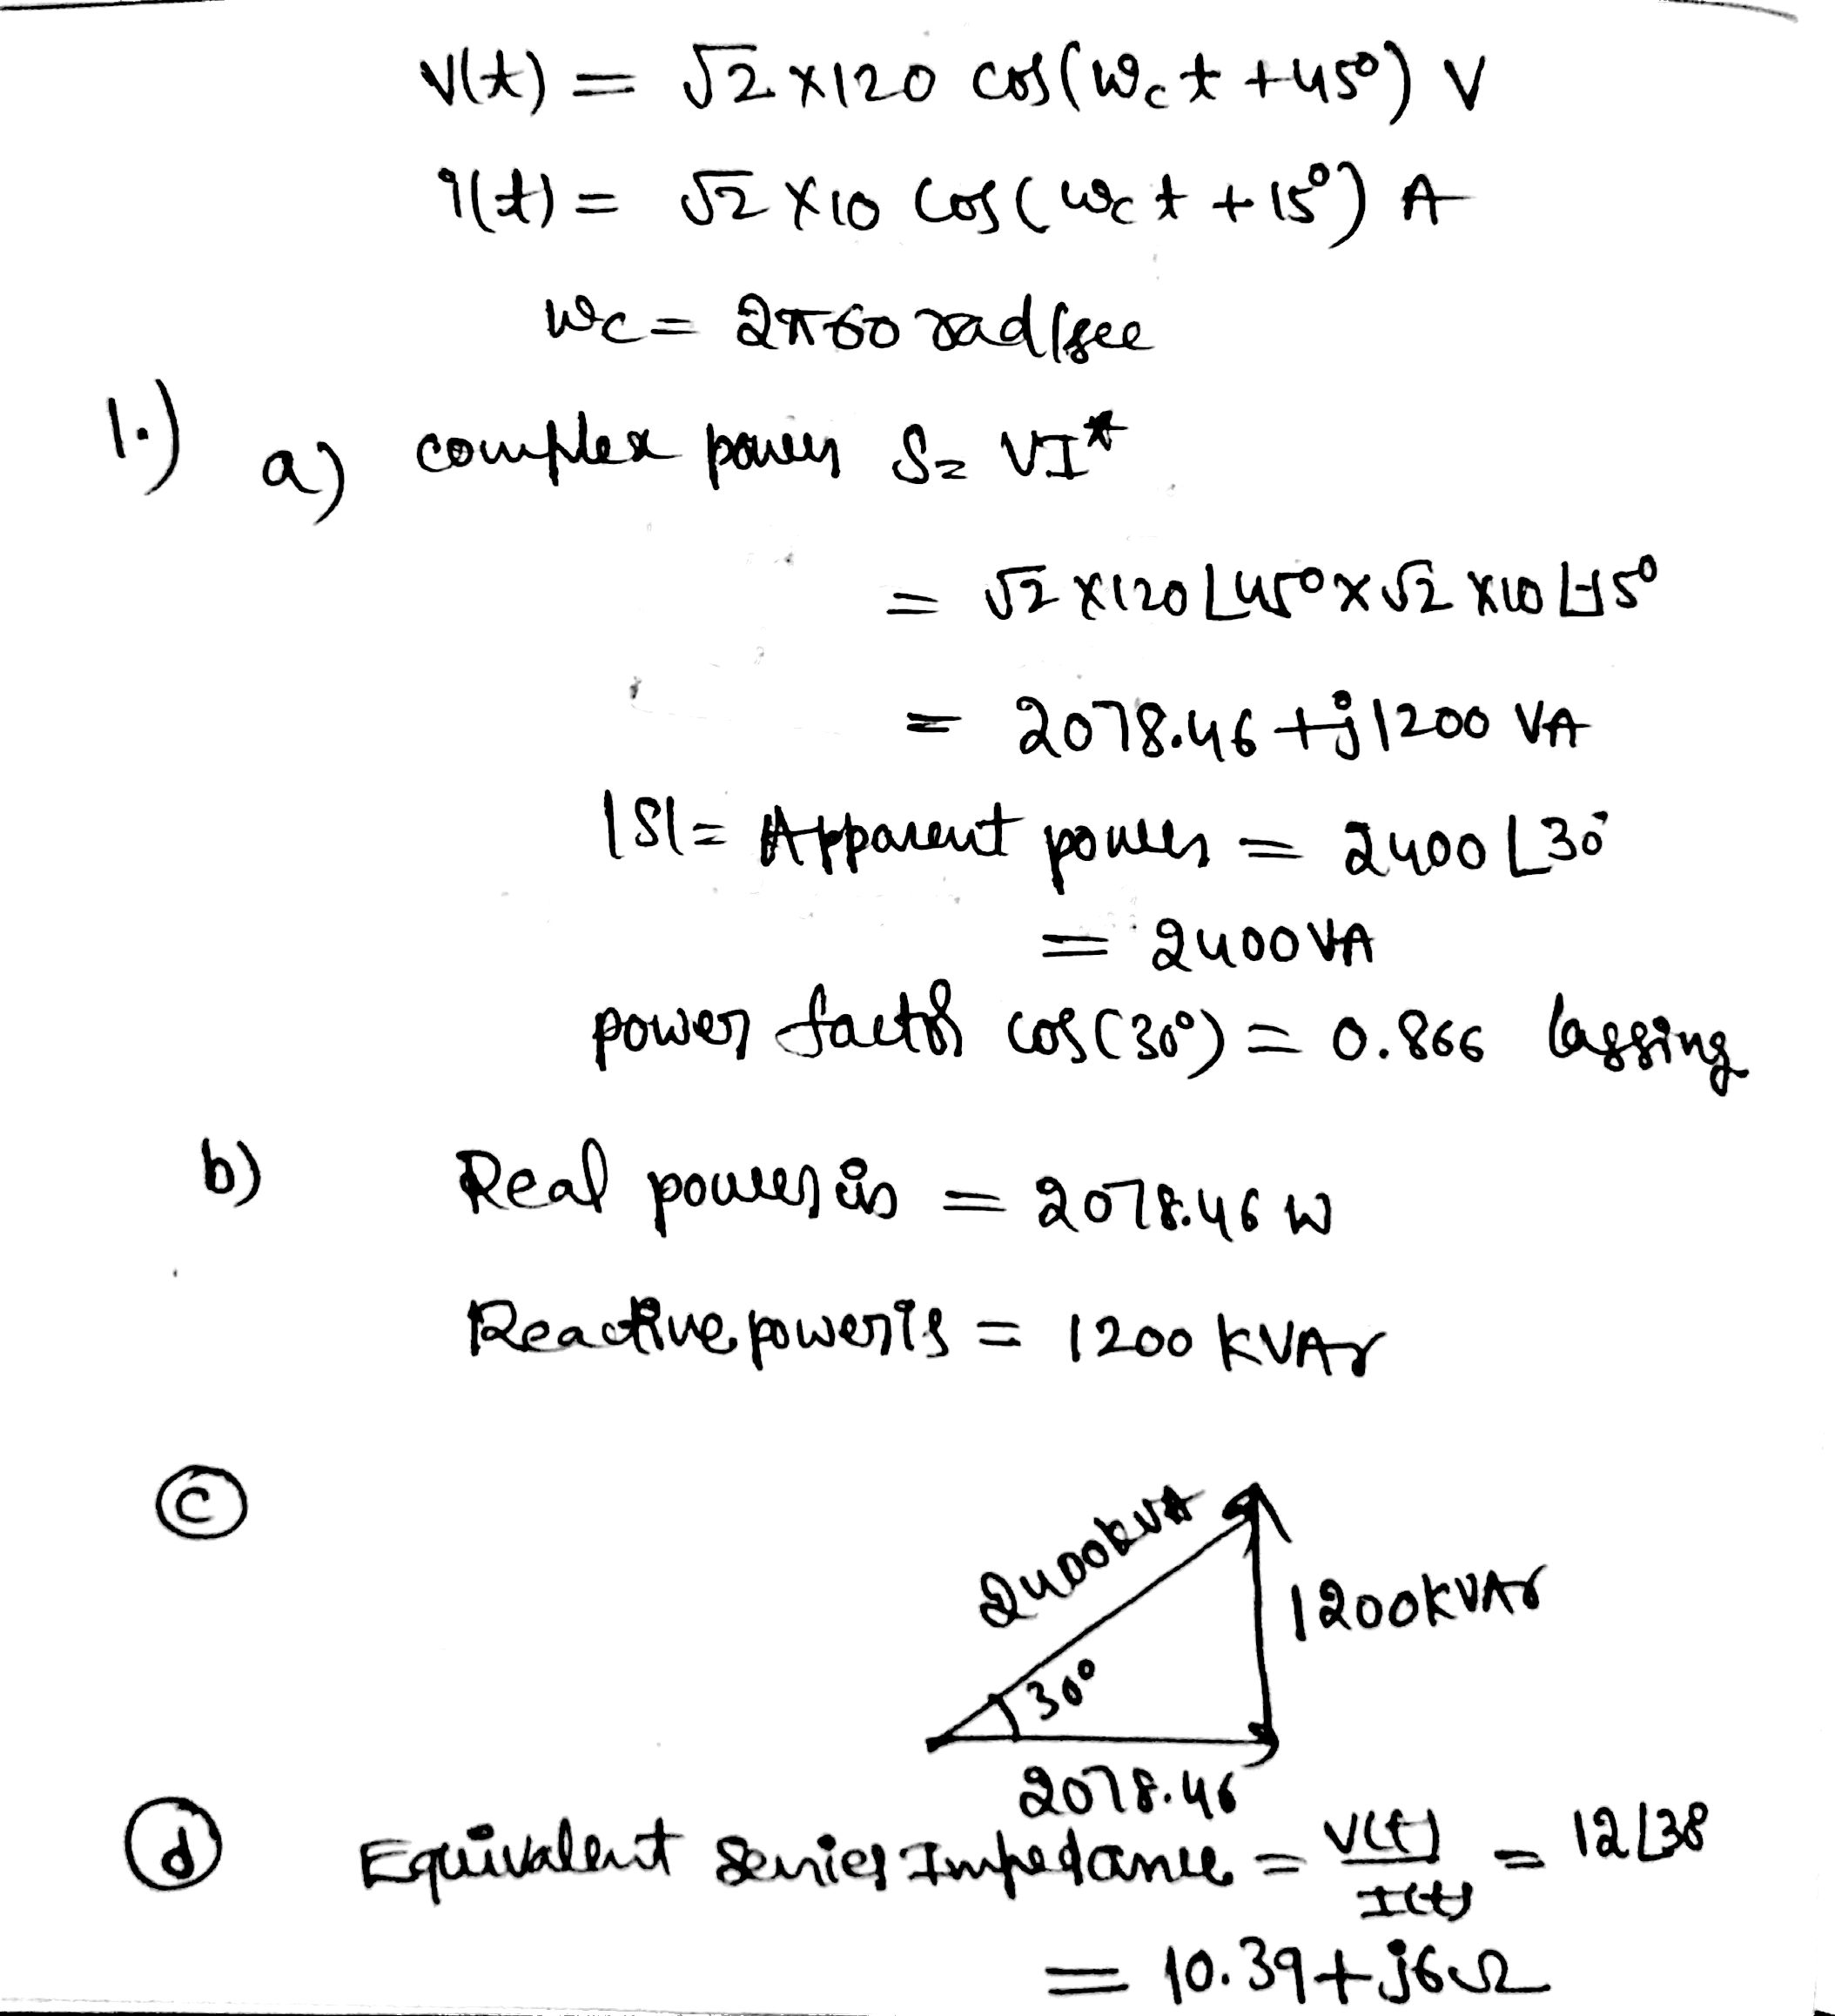 V(t) = √2 x120 cos(ωc t +45°) V
i(t) = √2 x10 cos(ωc t +15°) A
ωc = 2π60 rad/sec
1.) a) complex power S= VI*
= √2 x120∠45° x √2 x10∠-15°
= 2078.46 +j1200 VA
|S| = Apparent power = 2400∠30°
= 2400VA
power factor cos(30°) = 0.866 lagging
b) Real power is = 2078.46 W
Reactive power is = 1200 KVAr
c
2400kVA
1200KVAr
30°
2078.46
d Equivalent Series Impedance = V(t)/I(t) = 12∠38
= 10.39+j6Ω